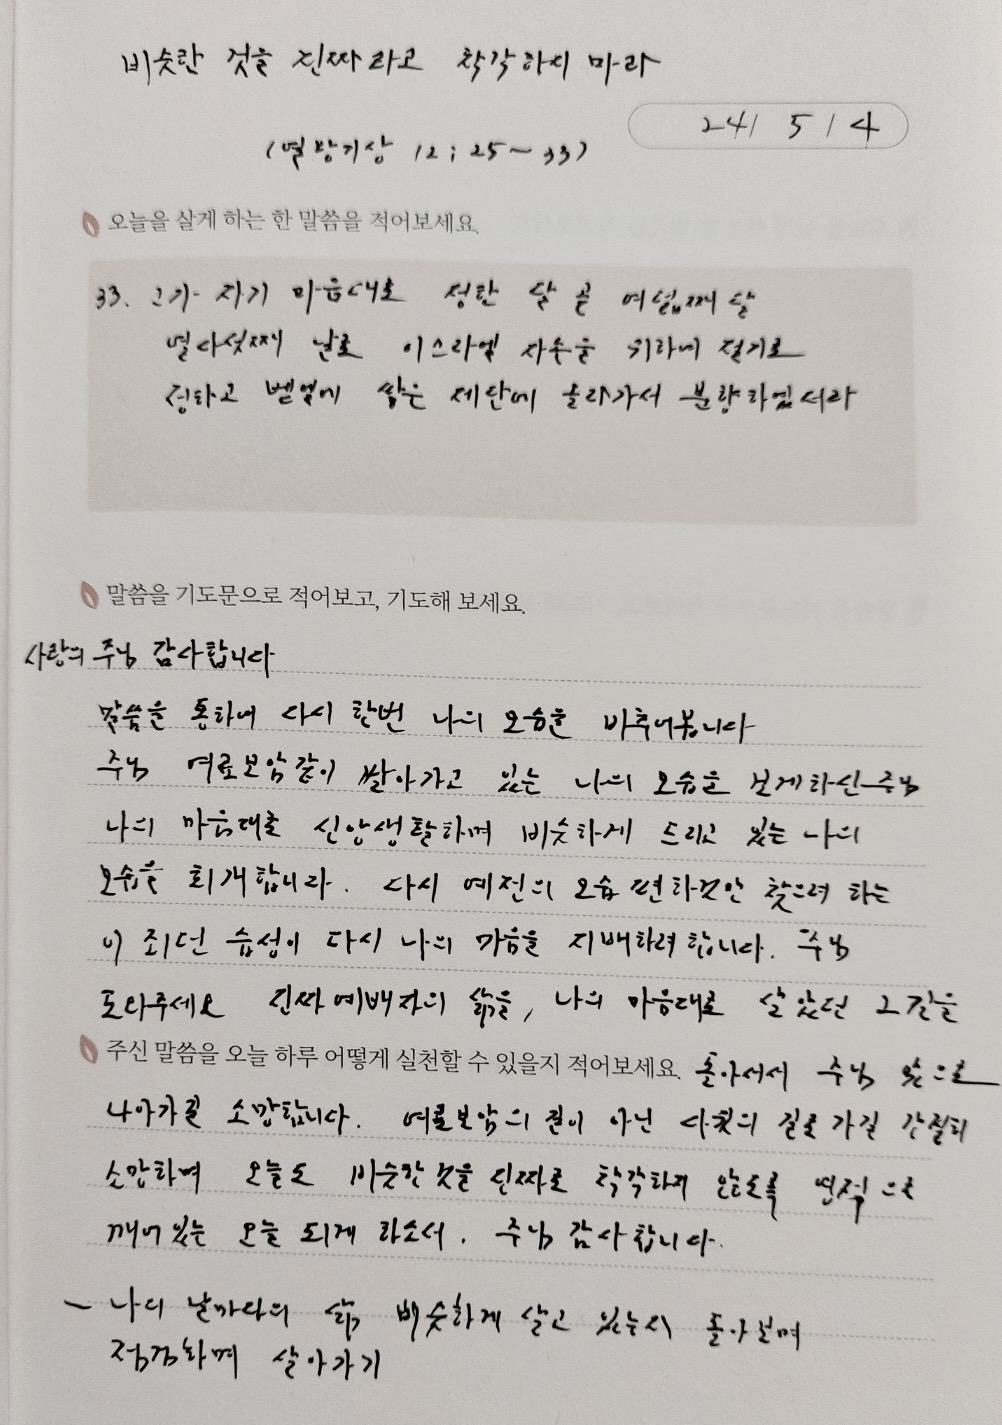 비슷한 것을 진짜라고 착각하지 마라
24 / 5 / 4
(열왕기상 12 : 25 ~ 33)
오늘을 살게 하는 한 말씀을 적어보세요.
33. 그가 자기 마음대로 정한 달 곧 여덟째 달
열다섯째 날로 이스라엘 자손을 위하여 절기로
정하고 벧엘에 쌓은 제단에 올라가서 분향하였더라
말씀을 기도문으로 적어보고, 기도해 보세요.
사랑의 주님 감사합니다
말씀을 통하여 다시 한번 나의 모습을 비추어봅니다
주님 여로보암같이 쌓아가고 있는 나의 모습을 보게하신 주님
나의 마음대로 신앙생활하며 비슷하게 드리고 있는 나의
모습을 회개합니다. 다시 예전의 모습 편한것만 찾으려 하는
이 죄던 습성이 다시 나의 마음을 지배하려합니다. 주님
도와주세요 진짜 예배자의 삶을, 나의 마음대로 살았던 그길을
주신 말씀을 오늘 하루 어떻게 실천할 수 있을지 적어보세요. 돌아서서 주님 앞으로
나아가길 소망합니다. 여로보암의 길이 아닌 다윗의 길로 가길 간절히
소망하며 오늘도 비슷한 것을 진짜로 착각하지 않도록 영적으로
깨어있는 오늘 되게 하소서. 주님 감사합니다.
- 나의 날마다의 삶 비슷하게 살고 있는지 돌아보며
점검하며 살아가기